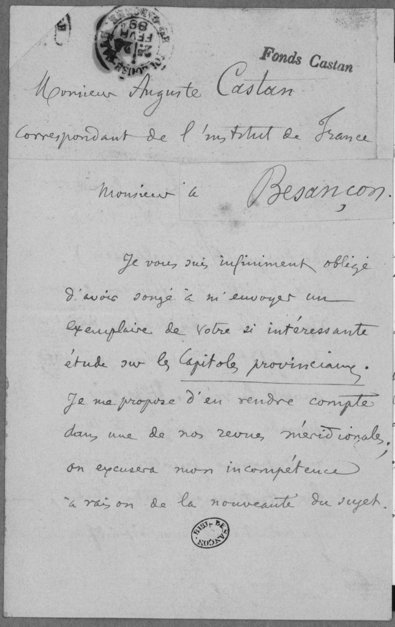 Fonds Castan
Monsieur Auguste Castan
Correspondant de l'institut de France
à Besançon.
Monsieur
Je vous suis infiniment obligé
d'avoir songé à m'envoyer un
exemplaire de votre si intéressante
étude sur les Capitoles provinciaux.
Je me propose d'en rendre compte
dans une de nos revues méridionales;
on excusera mon incompétence
à raison de la nouveauté du sujet.
BIBL. BESANÇON